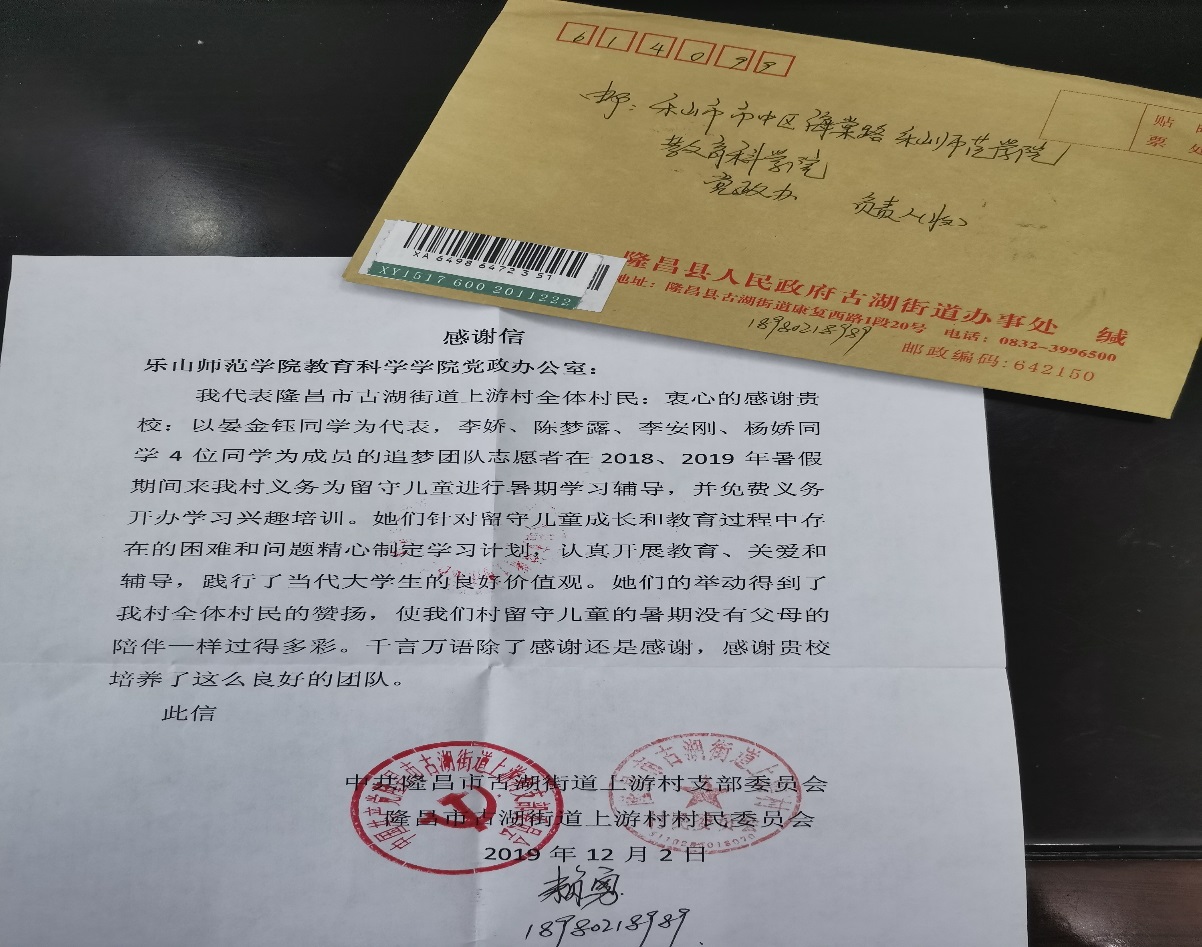 614099
邮：乐山市市中区海棠路乐山师范学院
教育科学学院
党政办 负责人(收)
贴
票 处
XA 6498 6472 3 51
XY1517 600 2011222
隆昌县人民政府古湖街道办事处 缄
地址：隆昌县古湖街道康复西路1段20号 电话：0832-3996500
18980218989
邮政编码:642150
感谢信
乐山师范学院教育科学学院党政办公室：
我代表隆昌市古湖街道上游村全体村民：衷心的感谢贵
校：以晏金钰同学为代表，李娇、陈梦露、李安刚、杨娇同
学 4 位同学为成员的追梦团队志愿者在 2018、2019 年暑假
期间来我村义务为留守儿童进行暑期学习辅导，并免费义务
开办学习兴趣培训。她们针对留守儿童成长和教育过程中存
在的困难和问题精心制定学习计划，认真开展教育、关爱和
辅导，践行了当代大学生的良好价值观。她们的举动得到了
我村全体村民的赞扬，使我们村留守儿童的暑期没有父母的
陪伴一样过得多彩。千言万语除了感谢还是感谢，感谢贵校
培养了这么良好的团队。
此信
中共隆昌市古湖街道上游村支部委员会
隆昌市古湖街道上游村村民委员会
2019 年 12 月 2 日
赖勇
18980218989